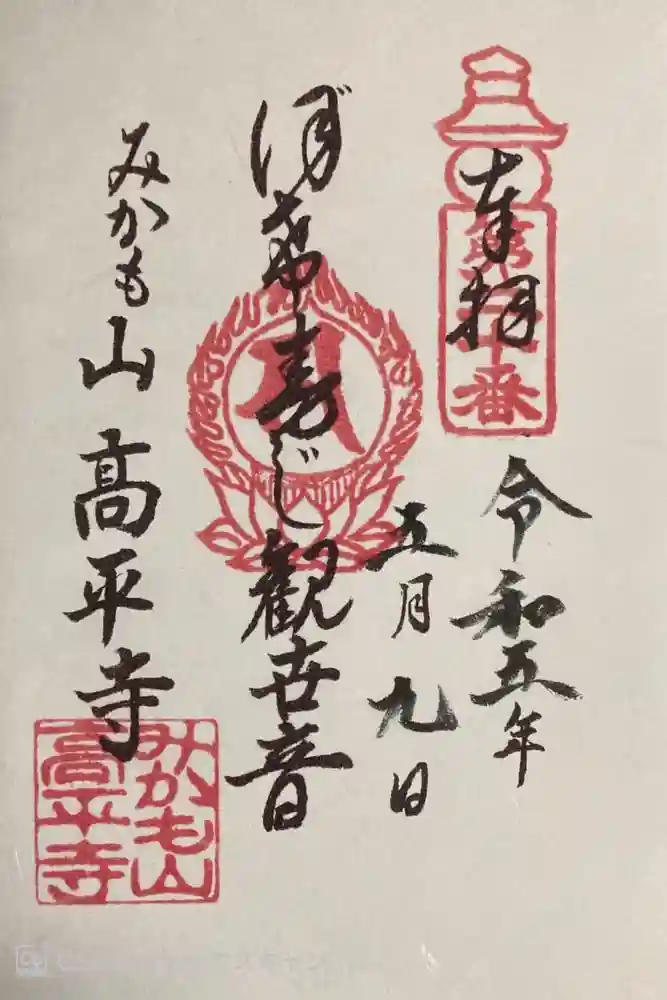 奉拝
令和五年
五月九日
ぼ希寿じ観世音
みかも山 高平寺
みかも山
高平寺